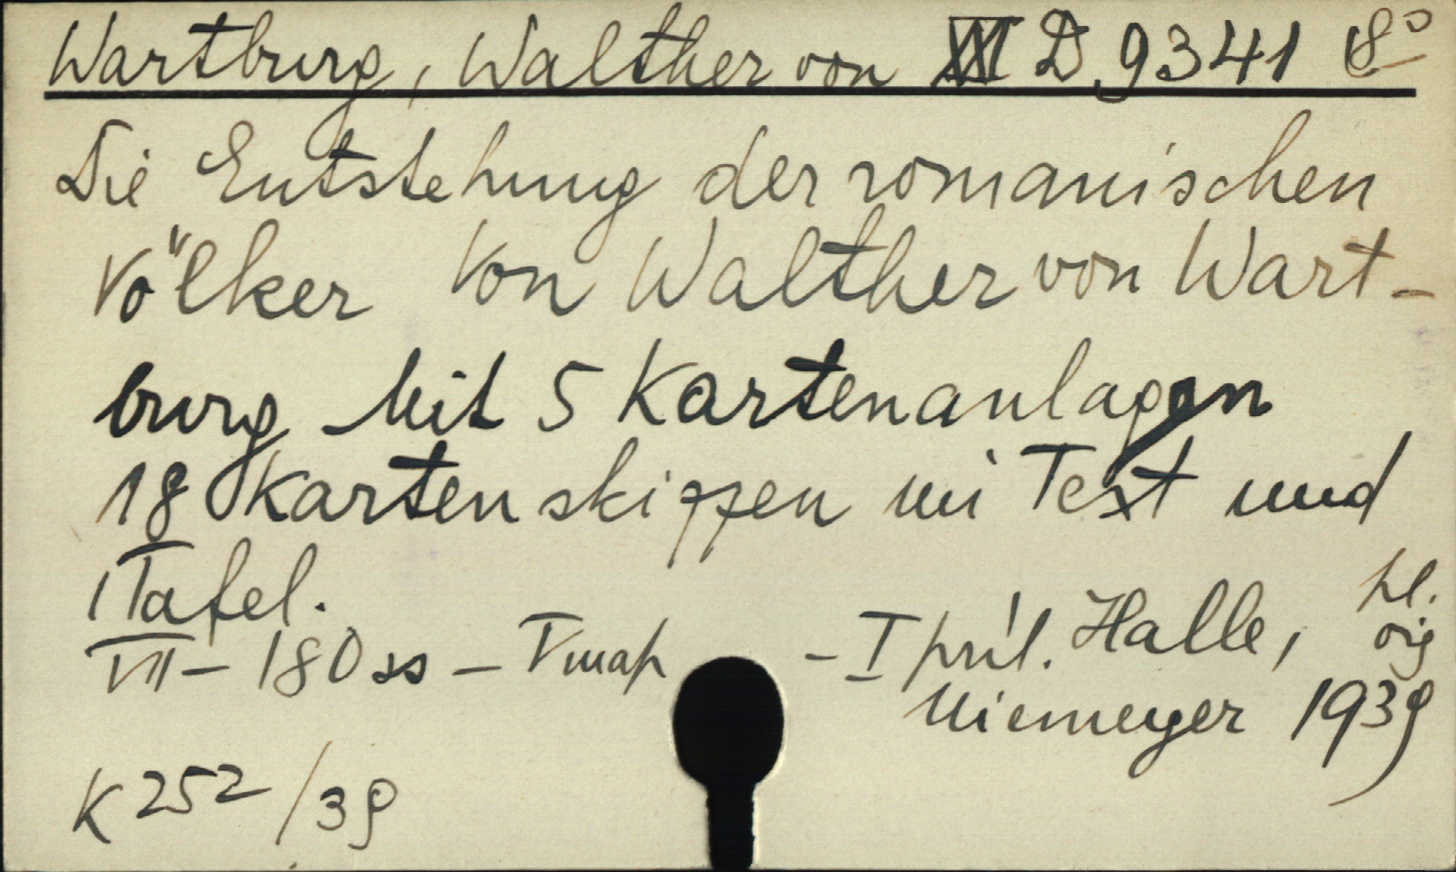 Wartburg, Walther von D 9341 8°
Die Entstehung der romanischen
Völker Von Walther von Wart-
burg Mit 5 Kartenanlagen
18 Kartenskizzen im Text und
1 Tafel.
VII – 180 ss – V map – I príl. Halle, pl.
Niemeyer 1939 orig
K 252/39